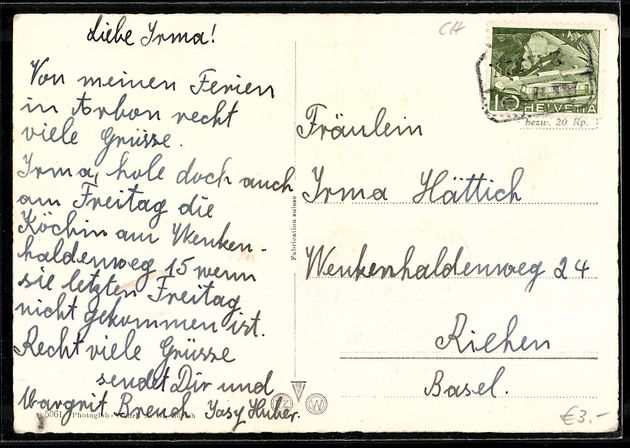 Liebe Irma!
Von meinen Ferien
in Arbon recht
viele Grüsse.
Irma, hole doch auch
am Freitag die
Köchin am Wenken-
haldenweg 15 wenn
sie letzten Freitag
nicht gekommen ist.
Recht viele Grüsse
sendet Dir und
Margrit Breuch Jasy Huber.
5061
Photoglob
Fabrication suisse
CH
10 HELVETIA
bezw. 20 Rp.
Fräulein
Irma Hättich
Wenkenhaldenweg 24
Riehen
Basel.
€3.-